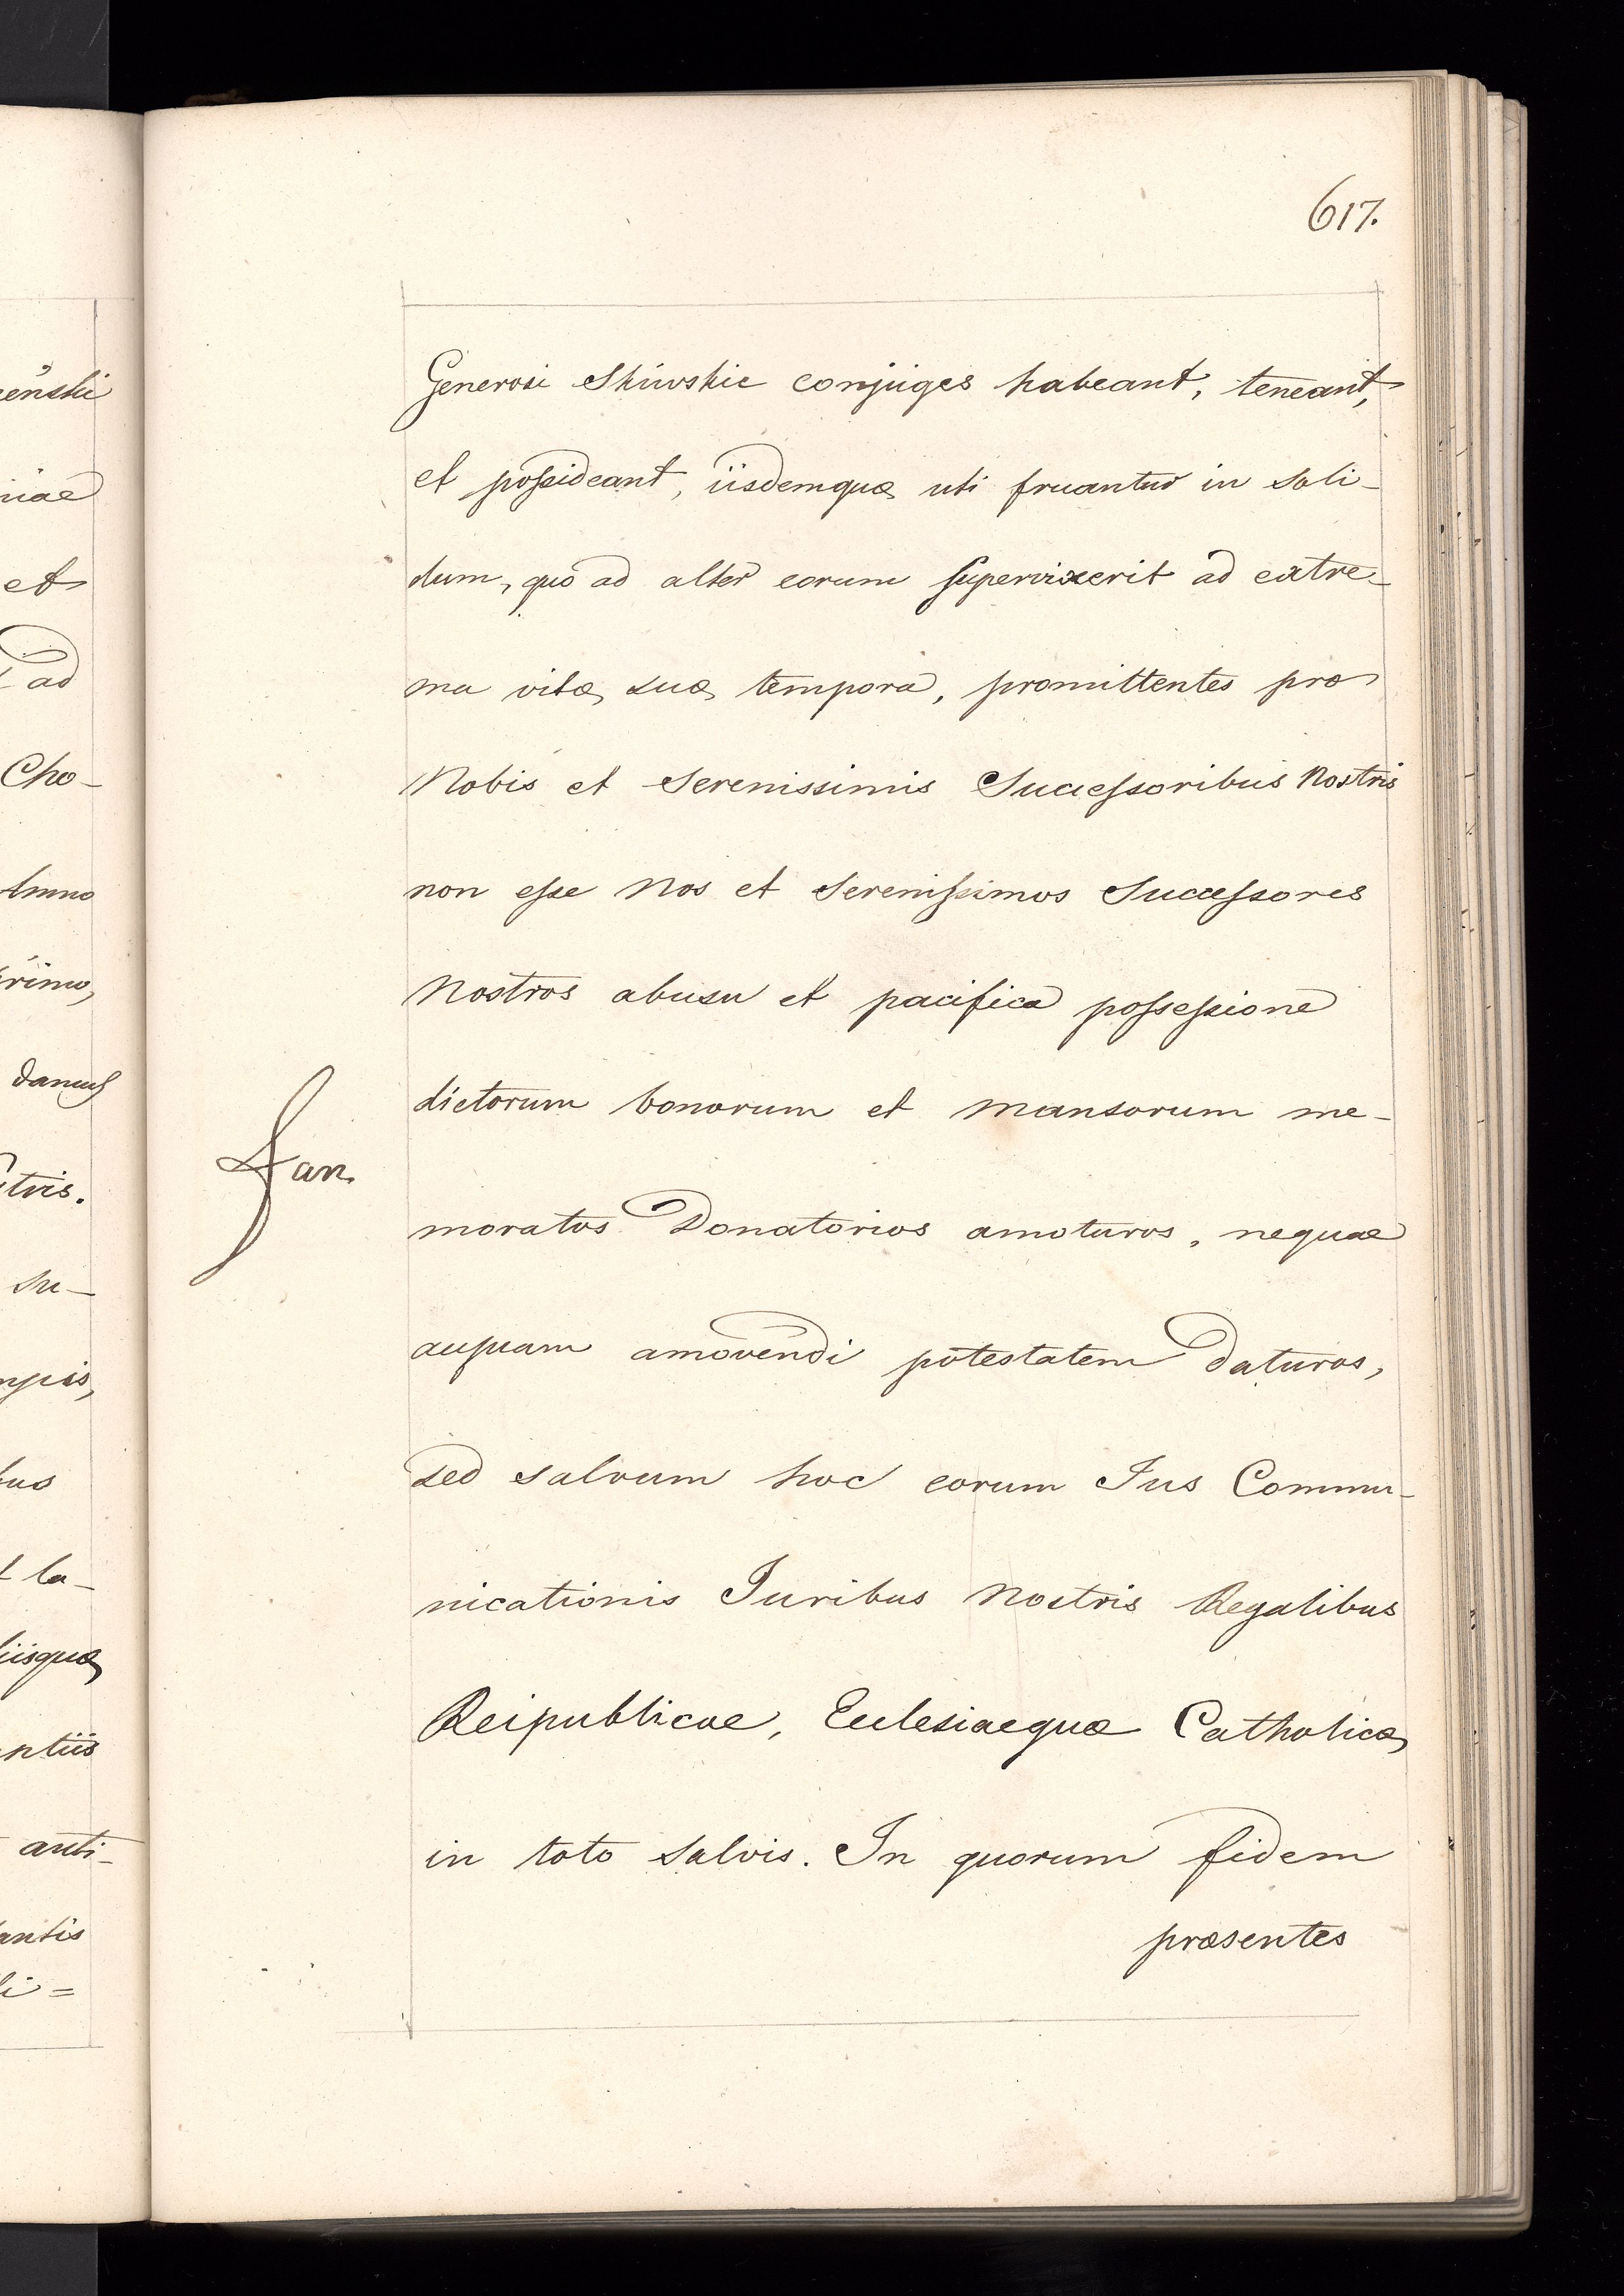 617.
Generosi Skiwskie conjuges habeant, teneant,
et possideant, iisdemquæ uti fruantur in soli-
dum, quo ad alter eorum supervixerit ad extre-
ma vitæ suæ tempora, promittentes pro
Nobis et Serenissimis Successoribus Nostris
non esse Nos et Serenissimos Successores
Nostros abusu et pacifica possessione
dictorum bonorum et mansorum me-
moratos Donatorios amoturos, nequae
amovendi potestatem daturos,
sed salvum hoc eorum Jus Commu-
nicationis Juribus Nostris Regalibus
Reipublicae, Ecclesiaequæ Catholicæ
in toto salvis. In quorum fidem
præsentes
enski
niae
et
ad
Cho-
Anno
primo,
damus
stris.
su-
mpis,
bus
t la-
iisquæ
ntiis
anti-
antis
li=